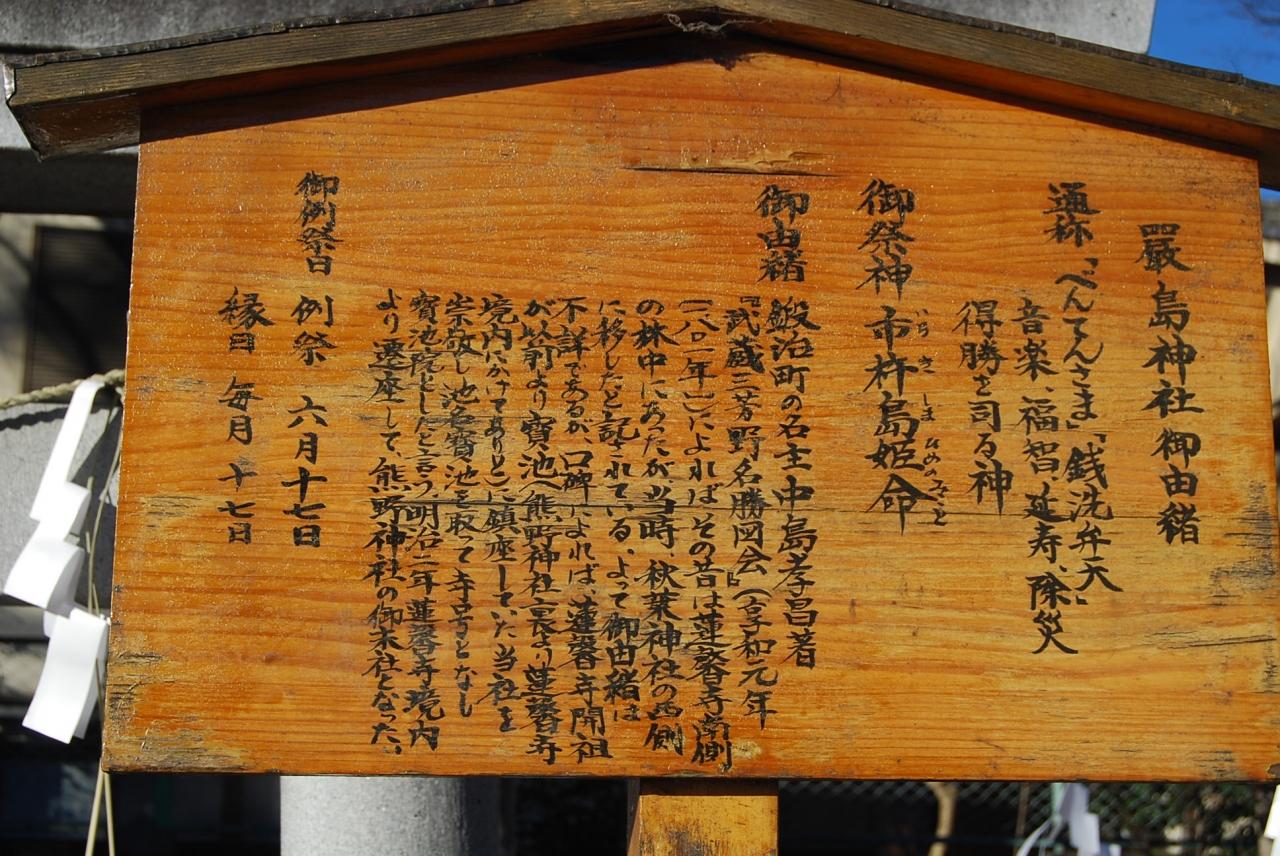 嚴島神社御由緒
通称「べんてんさま」「銭洗弁天」
音楽、福智、延寿、除災
得勝を司る神
御祭神 市杵島姫命
いち き しま ひめのみこと
御由緒 鍛治町の名主中島孝昌著
『武蔵三芳野名勝図会』(享和元年
(一八〇一年))によればその昔は蓮馨寺南側
の林中にあったが、当時、秋葉神社の西側
に移したと記されている、よって御由緒は
不詳であるが、口碑によれば、蓮馨寺開祖
が以前より寶池(熊野神社裏より蓮馨寺
境内にかけてありと)に鎮座していた当社を
崇敬し池名寶池を取って寺号となし
寶池院としたと言う明治二年蓮馨寺境内
より遷座して、熊野神社の御末社となった、
御例祭日 例祭 六月十七日
縁日 毎月 十七日